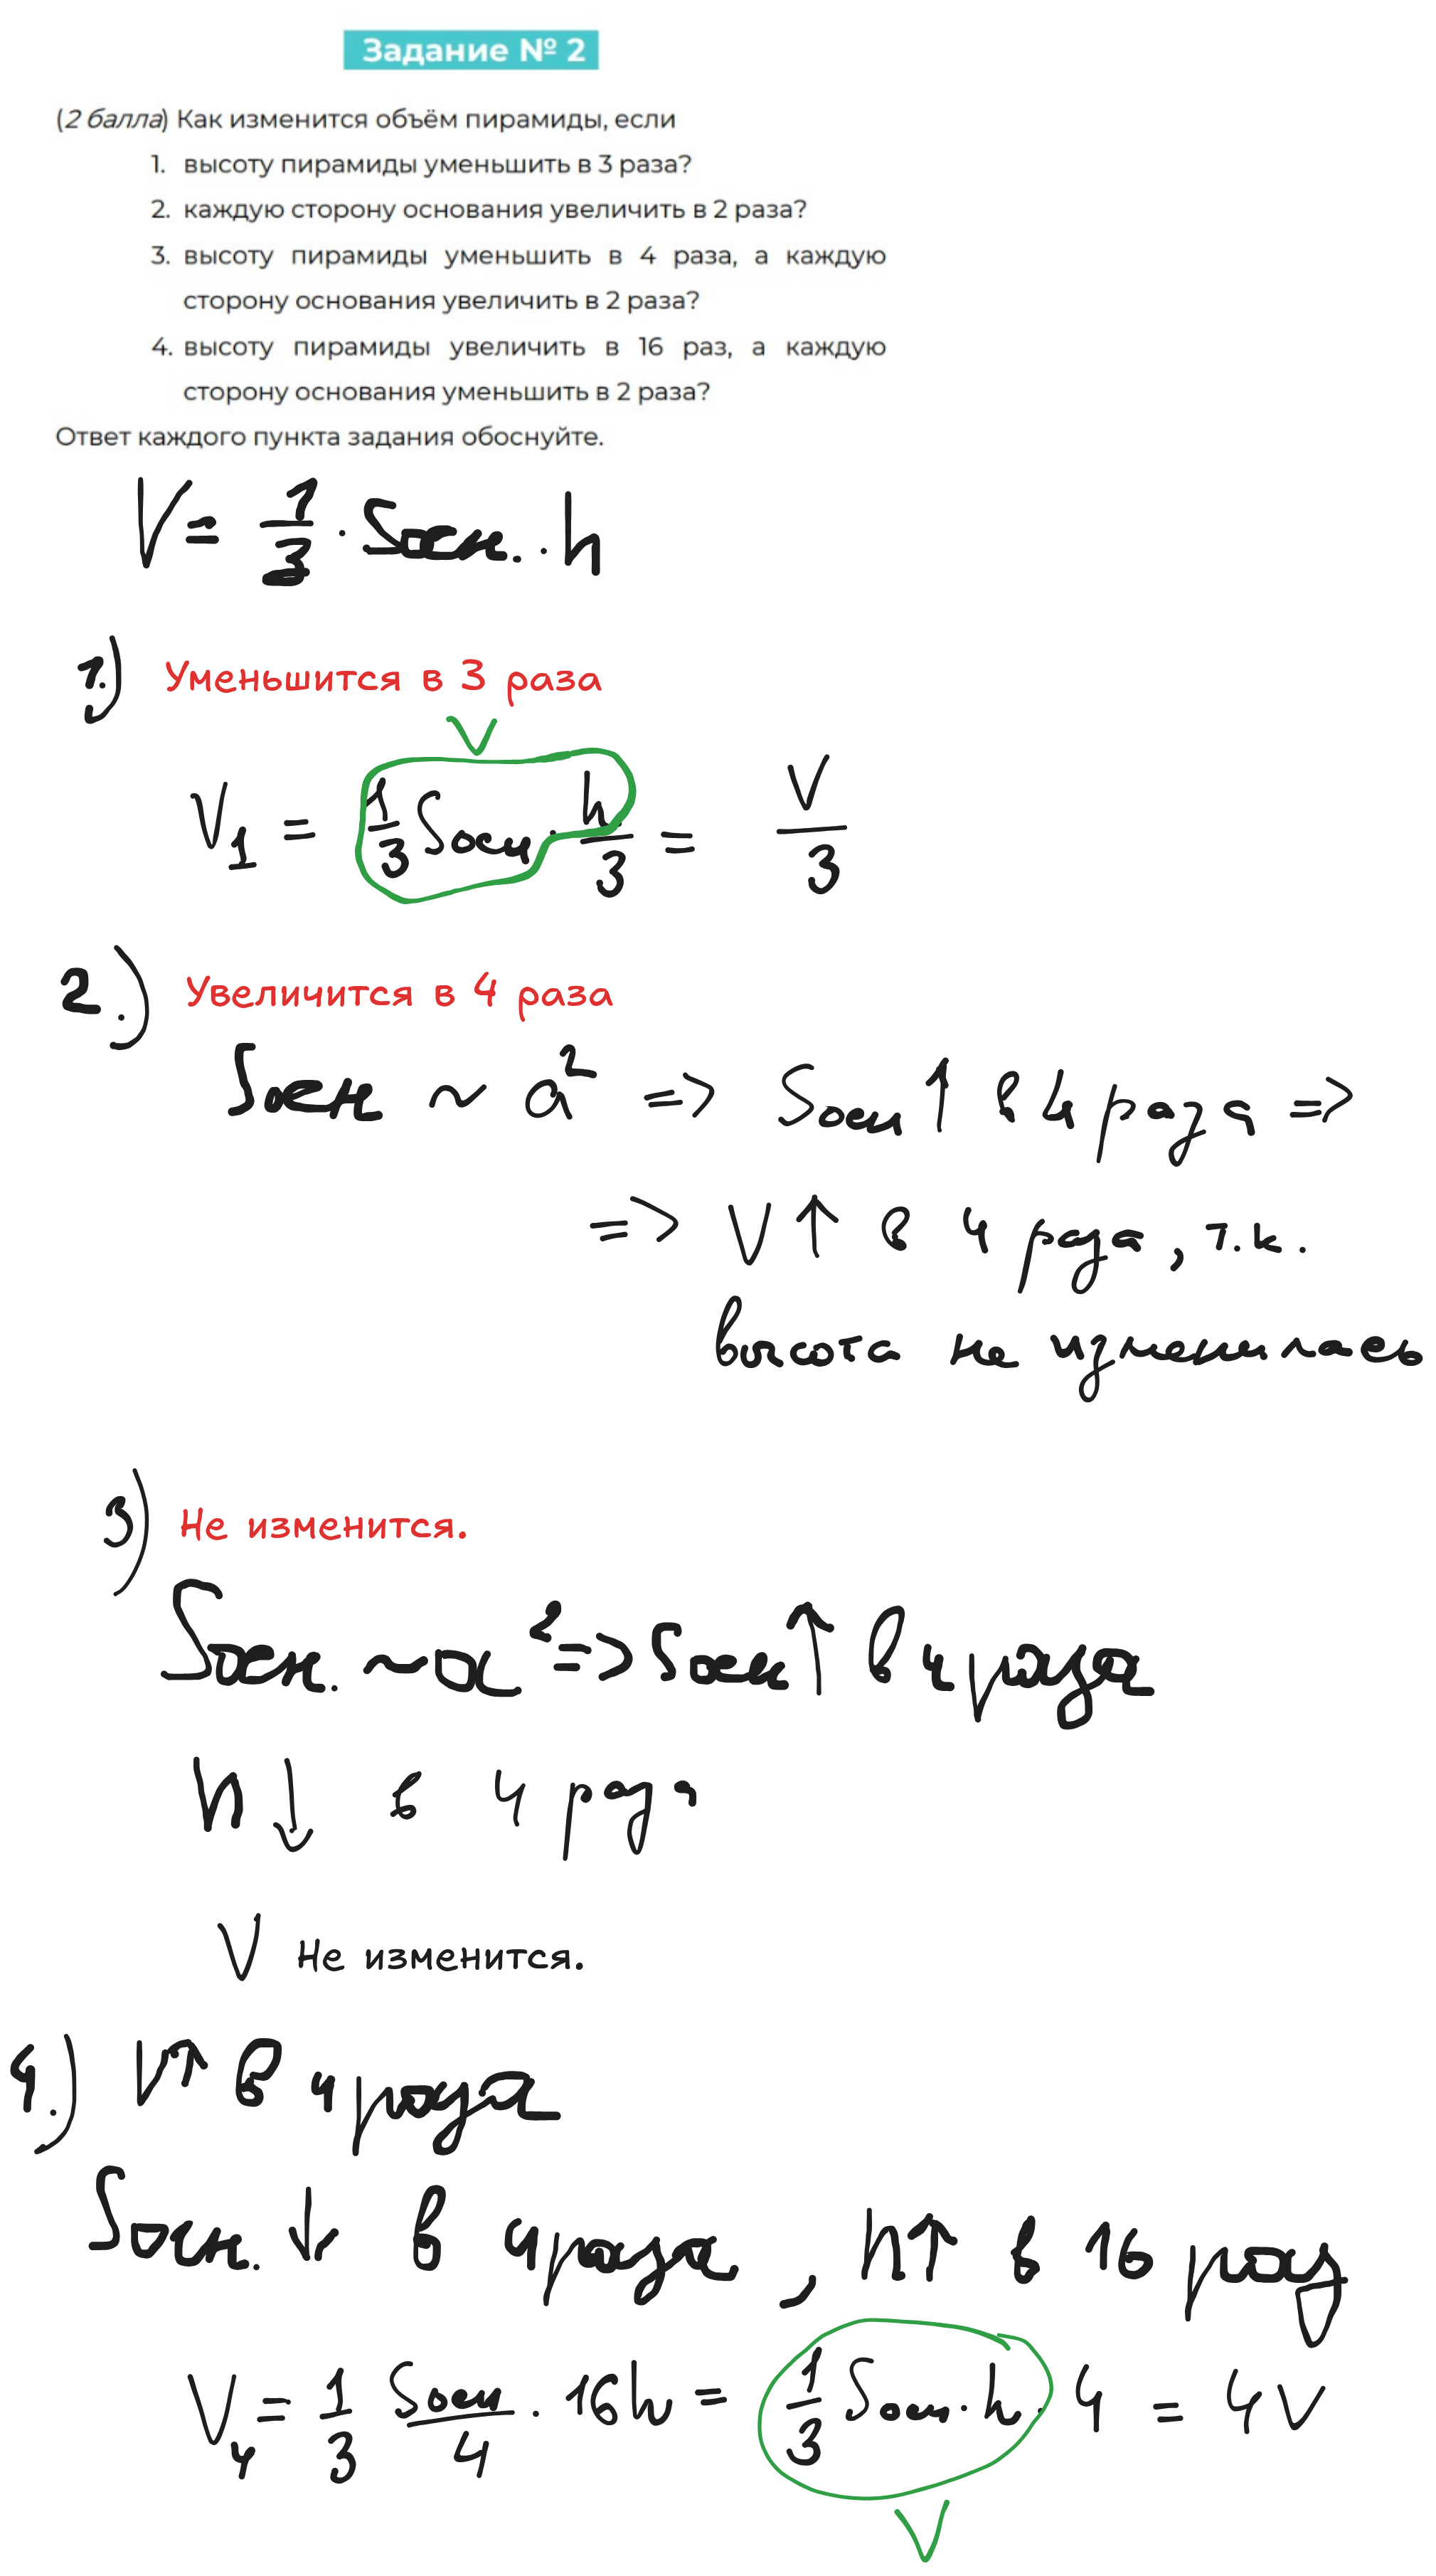 Задание № 2
(2 балла) Как изменится объём пирамиды, если
1. высоту пирамиды уменьшить в 3 раза?
2. каждую сторону основания увеличить в 2 раза?
3. высоту пирамиды уменьшить в 4 раза, а каждую
сторону основания увеличить в 2 раза?
4. высоту пирамиды увеличить в 16 раз, а каждую
сторону основания уменьшить в 2 раза?
Ответ каждого пункта задания обоснуйте.
V = 1/3 · Sосн. · h
1.) Уменьшится в 3 раза
V
V₁ = 1/3 Sосн · h/3 = V/3
2.) Увеличится в 4 раза
Sосн ~ a² => Sосн ↑ в 4 раза =>
=> V ↑ в 4 раза, т.к.
высота не изменилась
3) Не изменится.
Sосн. ~ a² => Sосн ↑ в 4 раза
h ↓ в 4 раза
V Не изменится.
4.) V↑ в 4 раза
Sосн. ↓ в 4 раза, h↑ в 16 раз
V₄ = 1/3 Sосн/4 · 16h = 1/3 Sосн · h · 4 = 4V
V